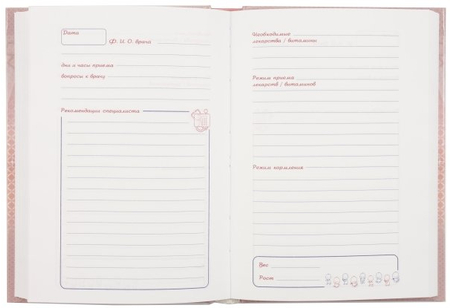 Дата
Ф. И. О. врача
дни и часы приема
вопросы к врачу
Рекомендации специалиста
Необходимые
лекарства / витамины
Режим приема
лекарств / витаминов
Режим кормления
Вес
Рост